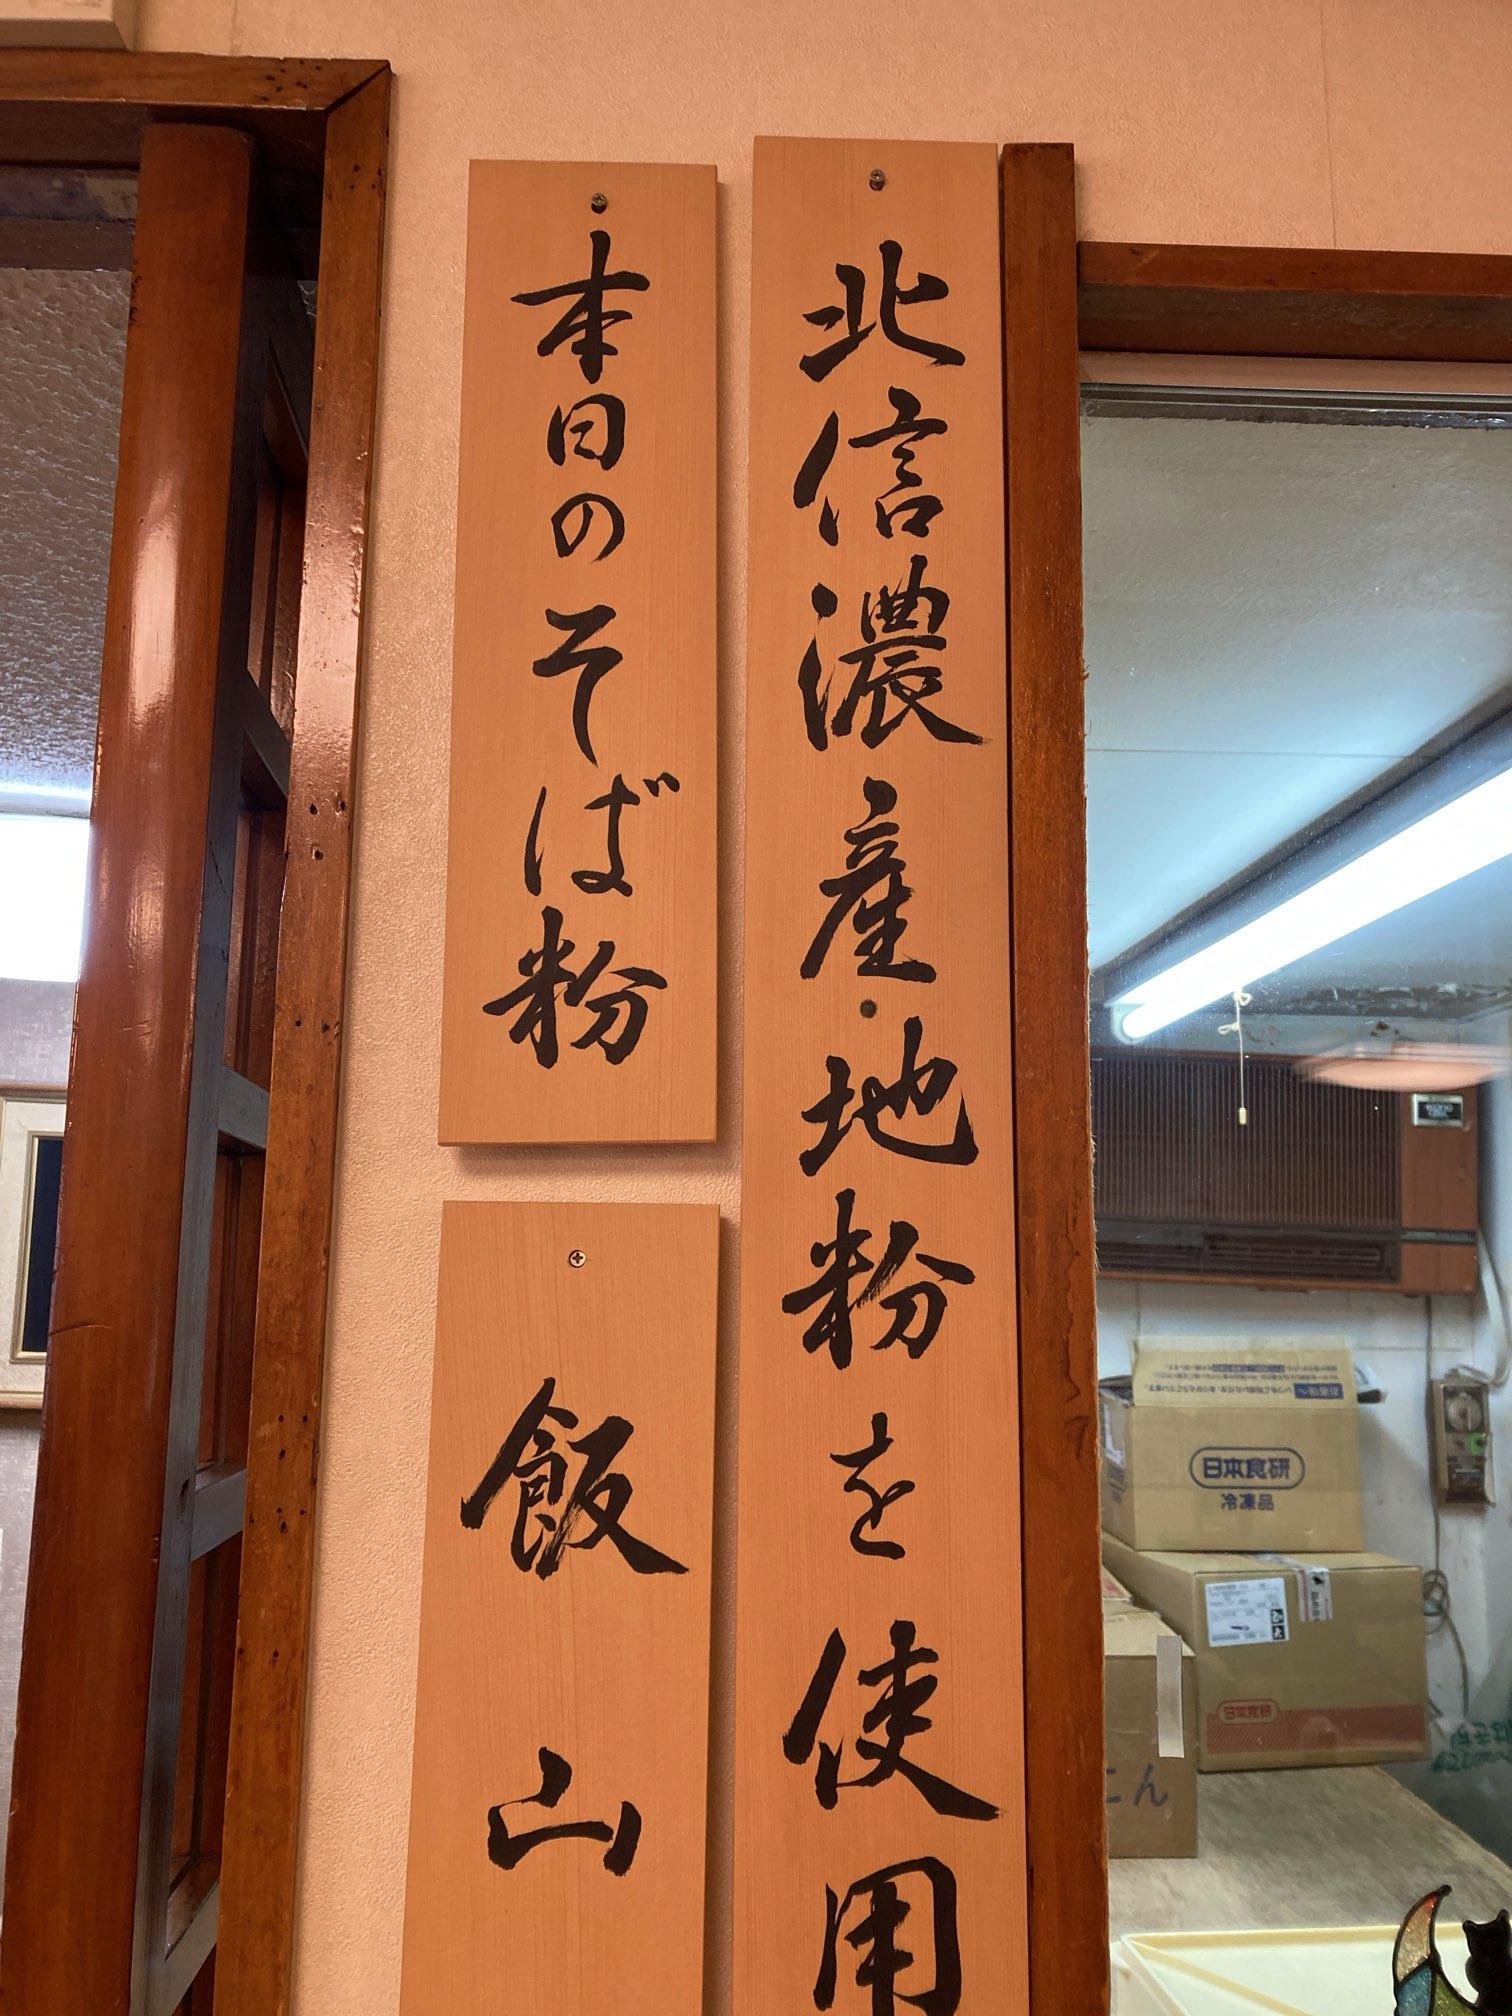 北信濃産地粉を使用
本日のそば粉
飯山
日本食研
冷凍品
日本食研
こん